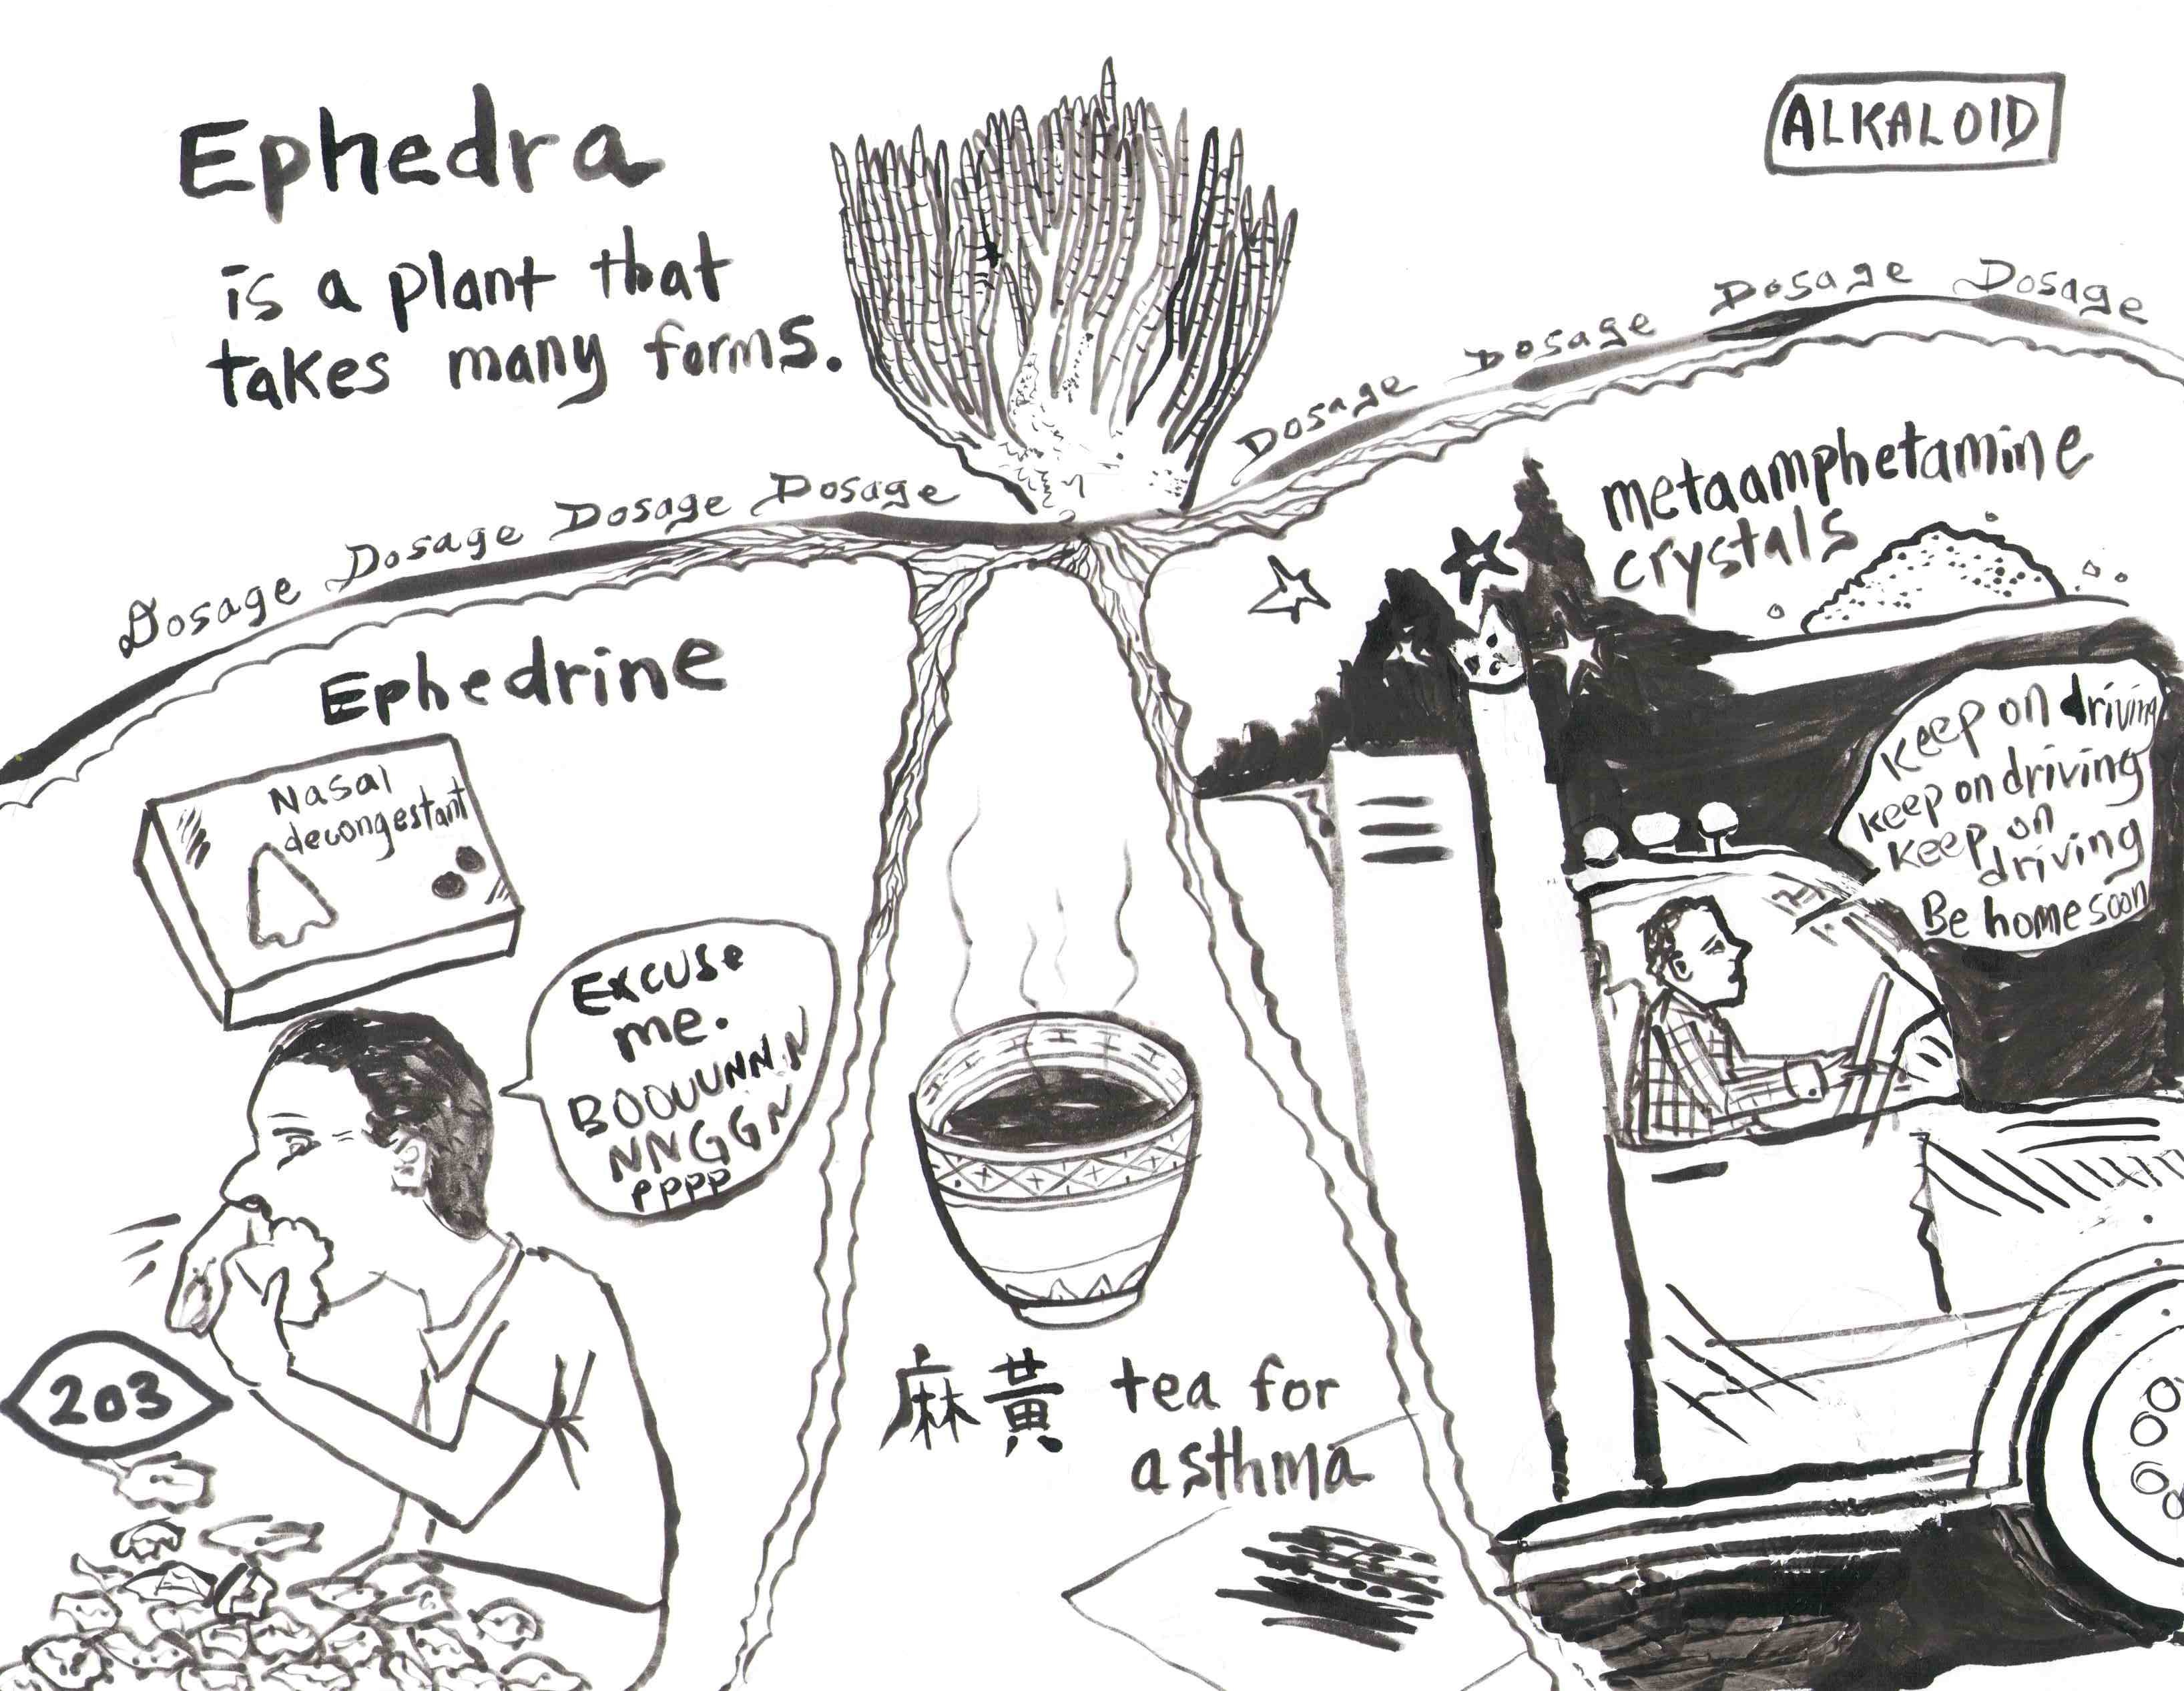 Ephedra
is a plant that
takes many forms.
ALKALOID
Dosage Dosage Dosage Dosage
Dosage Dosage Dosage Dosage
Ephedrine
Nasal
decongestant
Excuse
me.
BOOUUNNN
NNGGN
PPPP
203
麻黃 tea for
asthma
metaamphetamine
crystals
keep on driving
keep on driving
keep on
driving
Be home soon